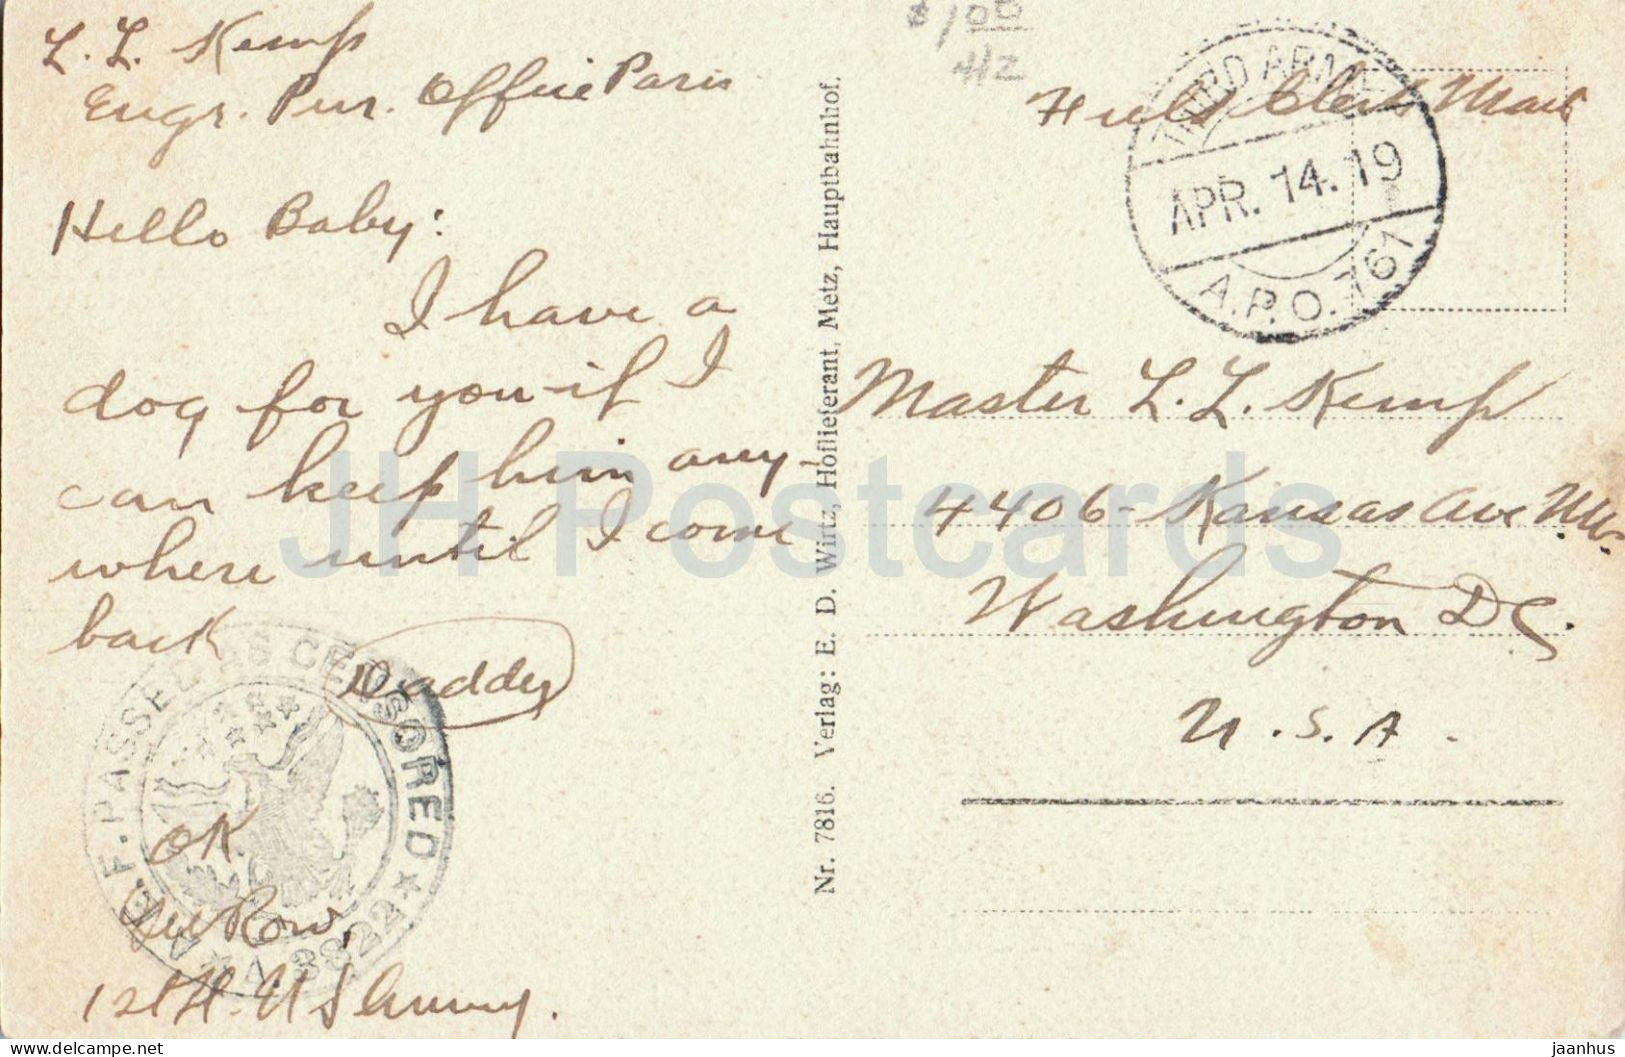 L. L. Kemp
Engr. Pur. Office Paris
Hello Baby:
I have a
dog for you - if I
can keep him any-
where until I come
back
Daddy
A.E.F. PASSED AS CENSORED
OK
Row,
1st Lt. U S Army.
Nr. 7816. Verlag: E. D. Wirtz, Hoflieferant, Metz, Hauptbahnhof.
$1.00
THIRD ARMY
APR. 14. 19
A.P.O. 761
Field Clerk Mail
Master L. L. Kemp
4406 - Kansas Ave N.W.
Washington D C.
U. S. A.
JH Postcards
www.delcampe.net
jaanhus